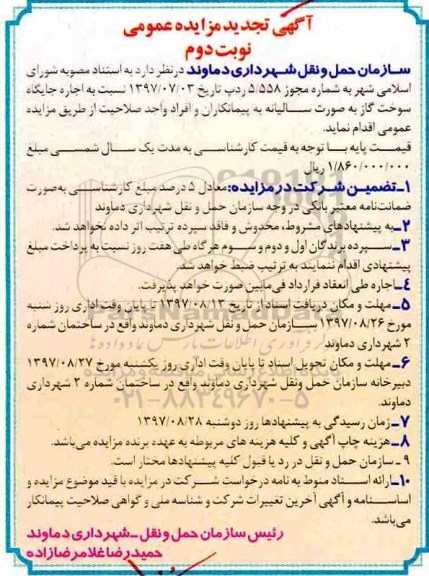 آگهی تجدید مزایده عمومی
نوبت دوم
سازمان حمل و نقل شهرداری دماوند در نظر دارد به استناد مصوبه شورای
اسلامی شهر به شماره مجوز ۵/۵۵۸ ردپ تاریخ ۱۳۹۷/۰۷/۰۳ نسبت به اجاره جایگاه
سوخت گاز به صورت سالیانه به پیمانکاران و افراد واجد صلاحیت از طریق مزایده
عمومی اقدام نماید.
قیمت پایه با توجه به قیمت کارشناسی به مدت یک سال شمسی مبلغ
۱/۸۶۰/۰۰۰/۰۰۰ ریال
۱ـ تضمین شرکت در مزایده: معادل ۵ درصد مبلغ کارشناسی به صورت
ضمانت‌نامه معتبر بانکی در وجه سازمان حمل و نقل شهرداری دماوند
۲ـ به پیشنهادهای مشروط، مخدوش و فاقد سپرده ترتیب اثر داده نخواهد شد.
۳ـ سپرده برندگان اول و دوم و سوم هرگاه طی هفت روز نسبت به پرداخت مبلغ
پیشنهادی اقدام ننمایند به ترتیب ضبط خواهد شد.
۴ـ اجاره طی انعقاد قرارداد فی مابین صورت خواهد پذیرفت.
۵ـ مهلت و مکان دریافت اسناد از تاریخ ۱۳۹۷/۰۸/۱۳ تا پایان وقت اداری روز شنبه
مورخ ۱۳۹۷/۰۸/۲۶ سازمان حمل و نقل شهرداری دماوند واقع در ساختمان شماره
۲ شهرداری دماوند
۶ـ مهلت و مکان تحویل اسناد تا پایان وقت اداری روز یکشنبه مورخ ۱۳۹۷/۰۸/۲۷
دبیرخانه سازمان حمل ونقل شهرداری دماوند واقع در ساختمان شماره ۲ شهرداری
دماوند.
۷ـ زمان رسیدگی به پیشنهادها روز دوشنبه ۱۳۹۷/۰۸/۲۸
۸ـ هزینه چاپ آگهی و کلیه هزینه های مربوطه به عهده برنده مزایده می‌باشد.
۹ـ سازمان حمل و نقل در رد یا قبول کلیه پیشنهادها مختار است.
۱۰ـ ارائه اسناد منوط به نامه درخواست شرکت در مزایده با قید موضوع مزایده و
اساسنامه و آگهی آخرین تغییرات شرکت و شناسه ملی و گواهی صلاحیت پیمانکار
می‌باشد.
رئیس سازمان حمل و نقل ـ شهرداری دماوند
حمیدرضا غلامرضازاده
ParsNamadData
۰۲۱-۸۸۳۴۹۶۷۰-۵